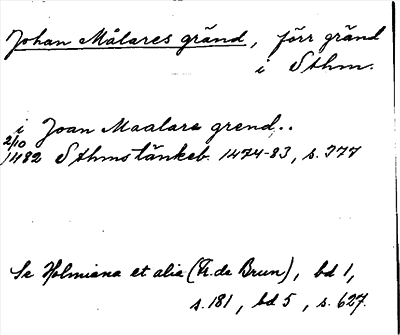 Johan Målares gränd, förr gränd
i Sthm.
i Joan Maalars grend..
2/10
1482 Sthms tänkeb. 1474-83, s. 377
Se Holmiana et alia (Fr. de Brun), bd 1,
s. 181, bd 5, s. 627.